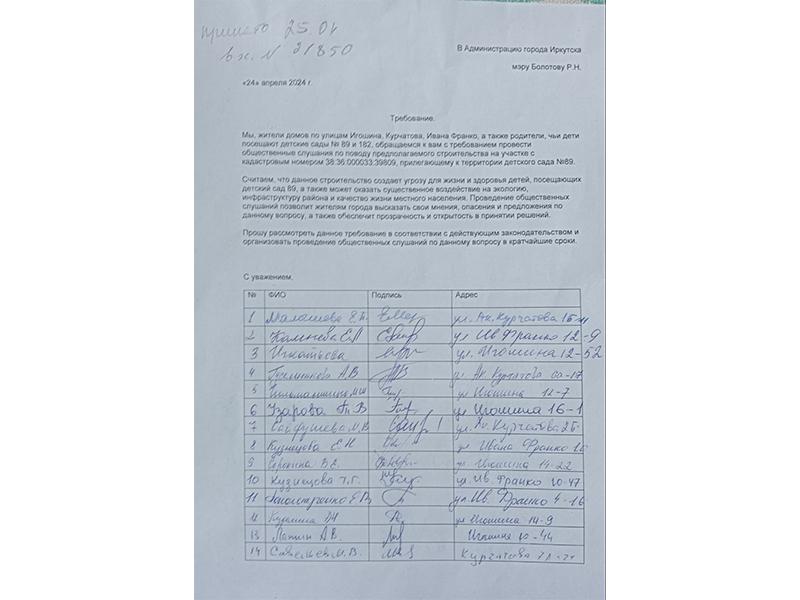 принято 25.04
вх. N 21850
В Администрацию города Иркутска
мэру Болотову Р.Н.
«24» апреля 2024 г.
Требование.
Мы, жители домов по улицам Игошина, Курчатова, Ивана Франко, а также родители, чьи дети
посещают детские сады № 89 и 182, обращаемся к вам с требованием провести
общественные слушания по поводу предполагаемого строительства на участке с
кадастровым номером 38:36:000033:39809, прилегающему к территории детского сада №89.
Считаем, что данное строительство создает угрозу для жизни и здоровья детей, посещающих
детский сад 89, а также может оказать существенное воздействие на экологию,
инфраструктуру района и качество жизни местного населения. Проведение общественных
слушаний позволит жителям города высказать свои мнения, опасения и предложения по
данному вопросу, а также обеспечит прозрачность и открытость в принятии решений.
Прошу рассмотреть данное требование в соответствии с действующим законодательством и
организовать проведение общественных слушаний по данному вопросу в кратчайшие сроки.
С уважением,
№ ФИО Подпись Адрес
1 ул. Ак. Курчатова
2 ул Ив Франко 12-9
3 Игнатьева ул. Игошина 12-52
4 А.В ул. Ак Курчатова
5 ул Игошина 12-7
6 Узарова ул Игошина 16-1
7 ул. Курчатова
8 Кузнецова Е.Н ул Ивана Франко
9 Сорокина В.Е. ул Игошина 14-22
10 Кузнецова Т.Г. ул. Ив. Франко
11 ул. Ив. Франко
12 ул Игошина 14-9
13 Лапин А.В. Игошина
14 Савельев М.В. Курчатова